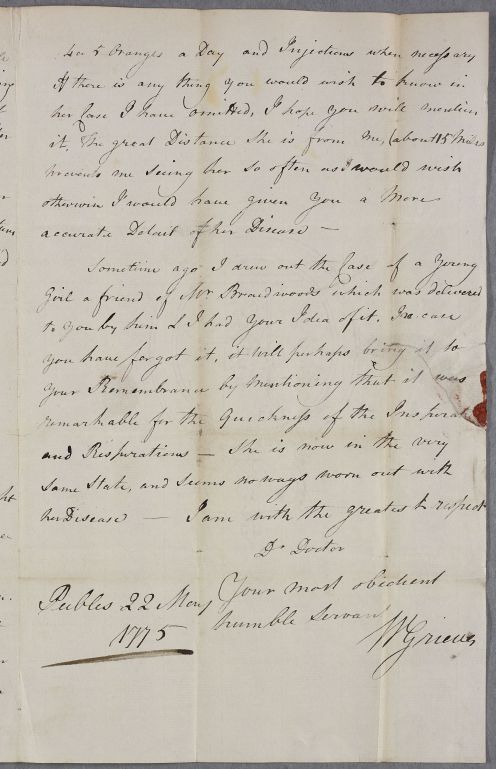 4 or 5 Oranges a Day and Injections when necessary
If there is any thing you would wish to know in
her Case I have omitted, I hope you will mention
it, The great Distance she is from me, (about 15 Miles
prevents me seeing her so often as I would wish
otherwise I would have given you a More
accurate Detail of her Disease —
Sometime ago I drew out the Case of a Young
Girl a friend of Mr Broadwoods which was delivered
to you by him & I had your Idea of it, In case
you have forgot it, it will perhaps bring it to
your Remembrance by mentioning that it was
remarkable for the Quickness of the Inspirat
and Respirations — She is now in the very
same State, and seems noways worn out with
her Disease — I am with the greatest respect
Dr Doctor
Your most obedient
humble Servant
Peebles 22 May
1775
W Grieve